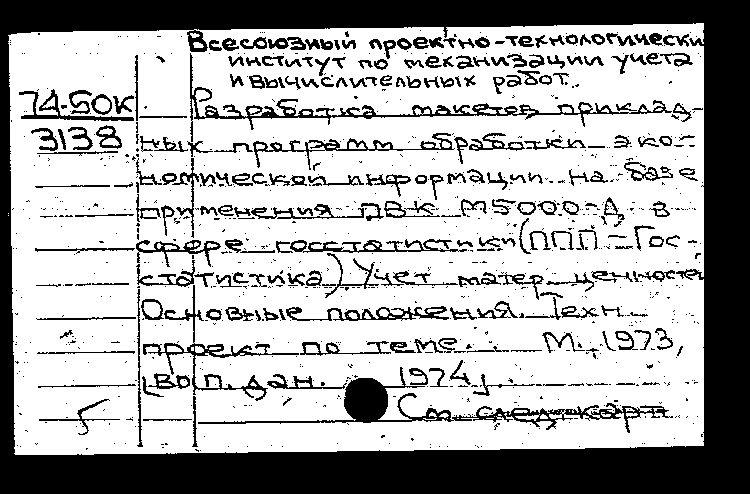 Всесоюзный проектно-технологически
институт по механизации учета
и вычислительных работ.
74-50К
Разработка макетов приклад-
3138
ных программ обработки эко-
номической информации на базе
применения ДВК М5000-Д в
сфере госстатистики (ППП-Гос-
статистика) Учет матер. ценностей
Основные положения. Техн.
проект по теме. М., 1973,
[Вып. дан. 1974].
5
См след карт